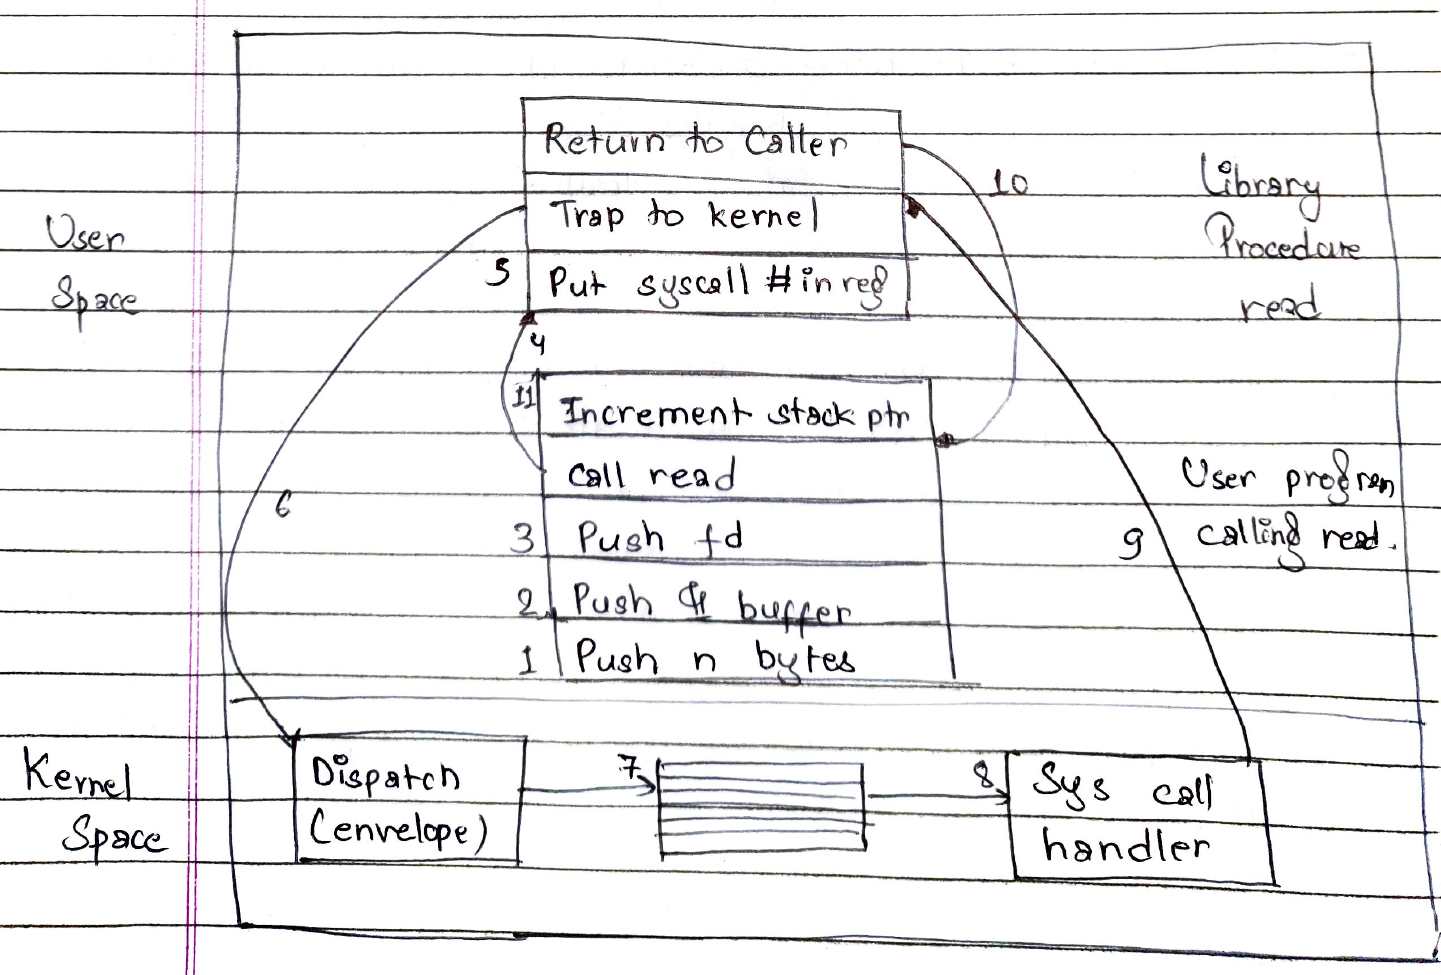 Return to Caller
Trap to kernel
5 Put syscall # in reg
4
10
Library
Procedure
read
User
Space
11 Increment stack ptr
call read
3 Push fd
2 Push & buffer
1 Push n bytes
6
9
User program
calling read.
Kernel
Space
Dispatch
(envelope)
7
8
Sys call
handler